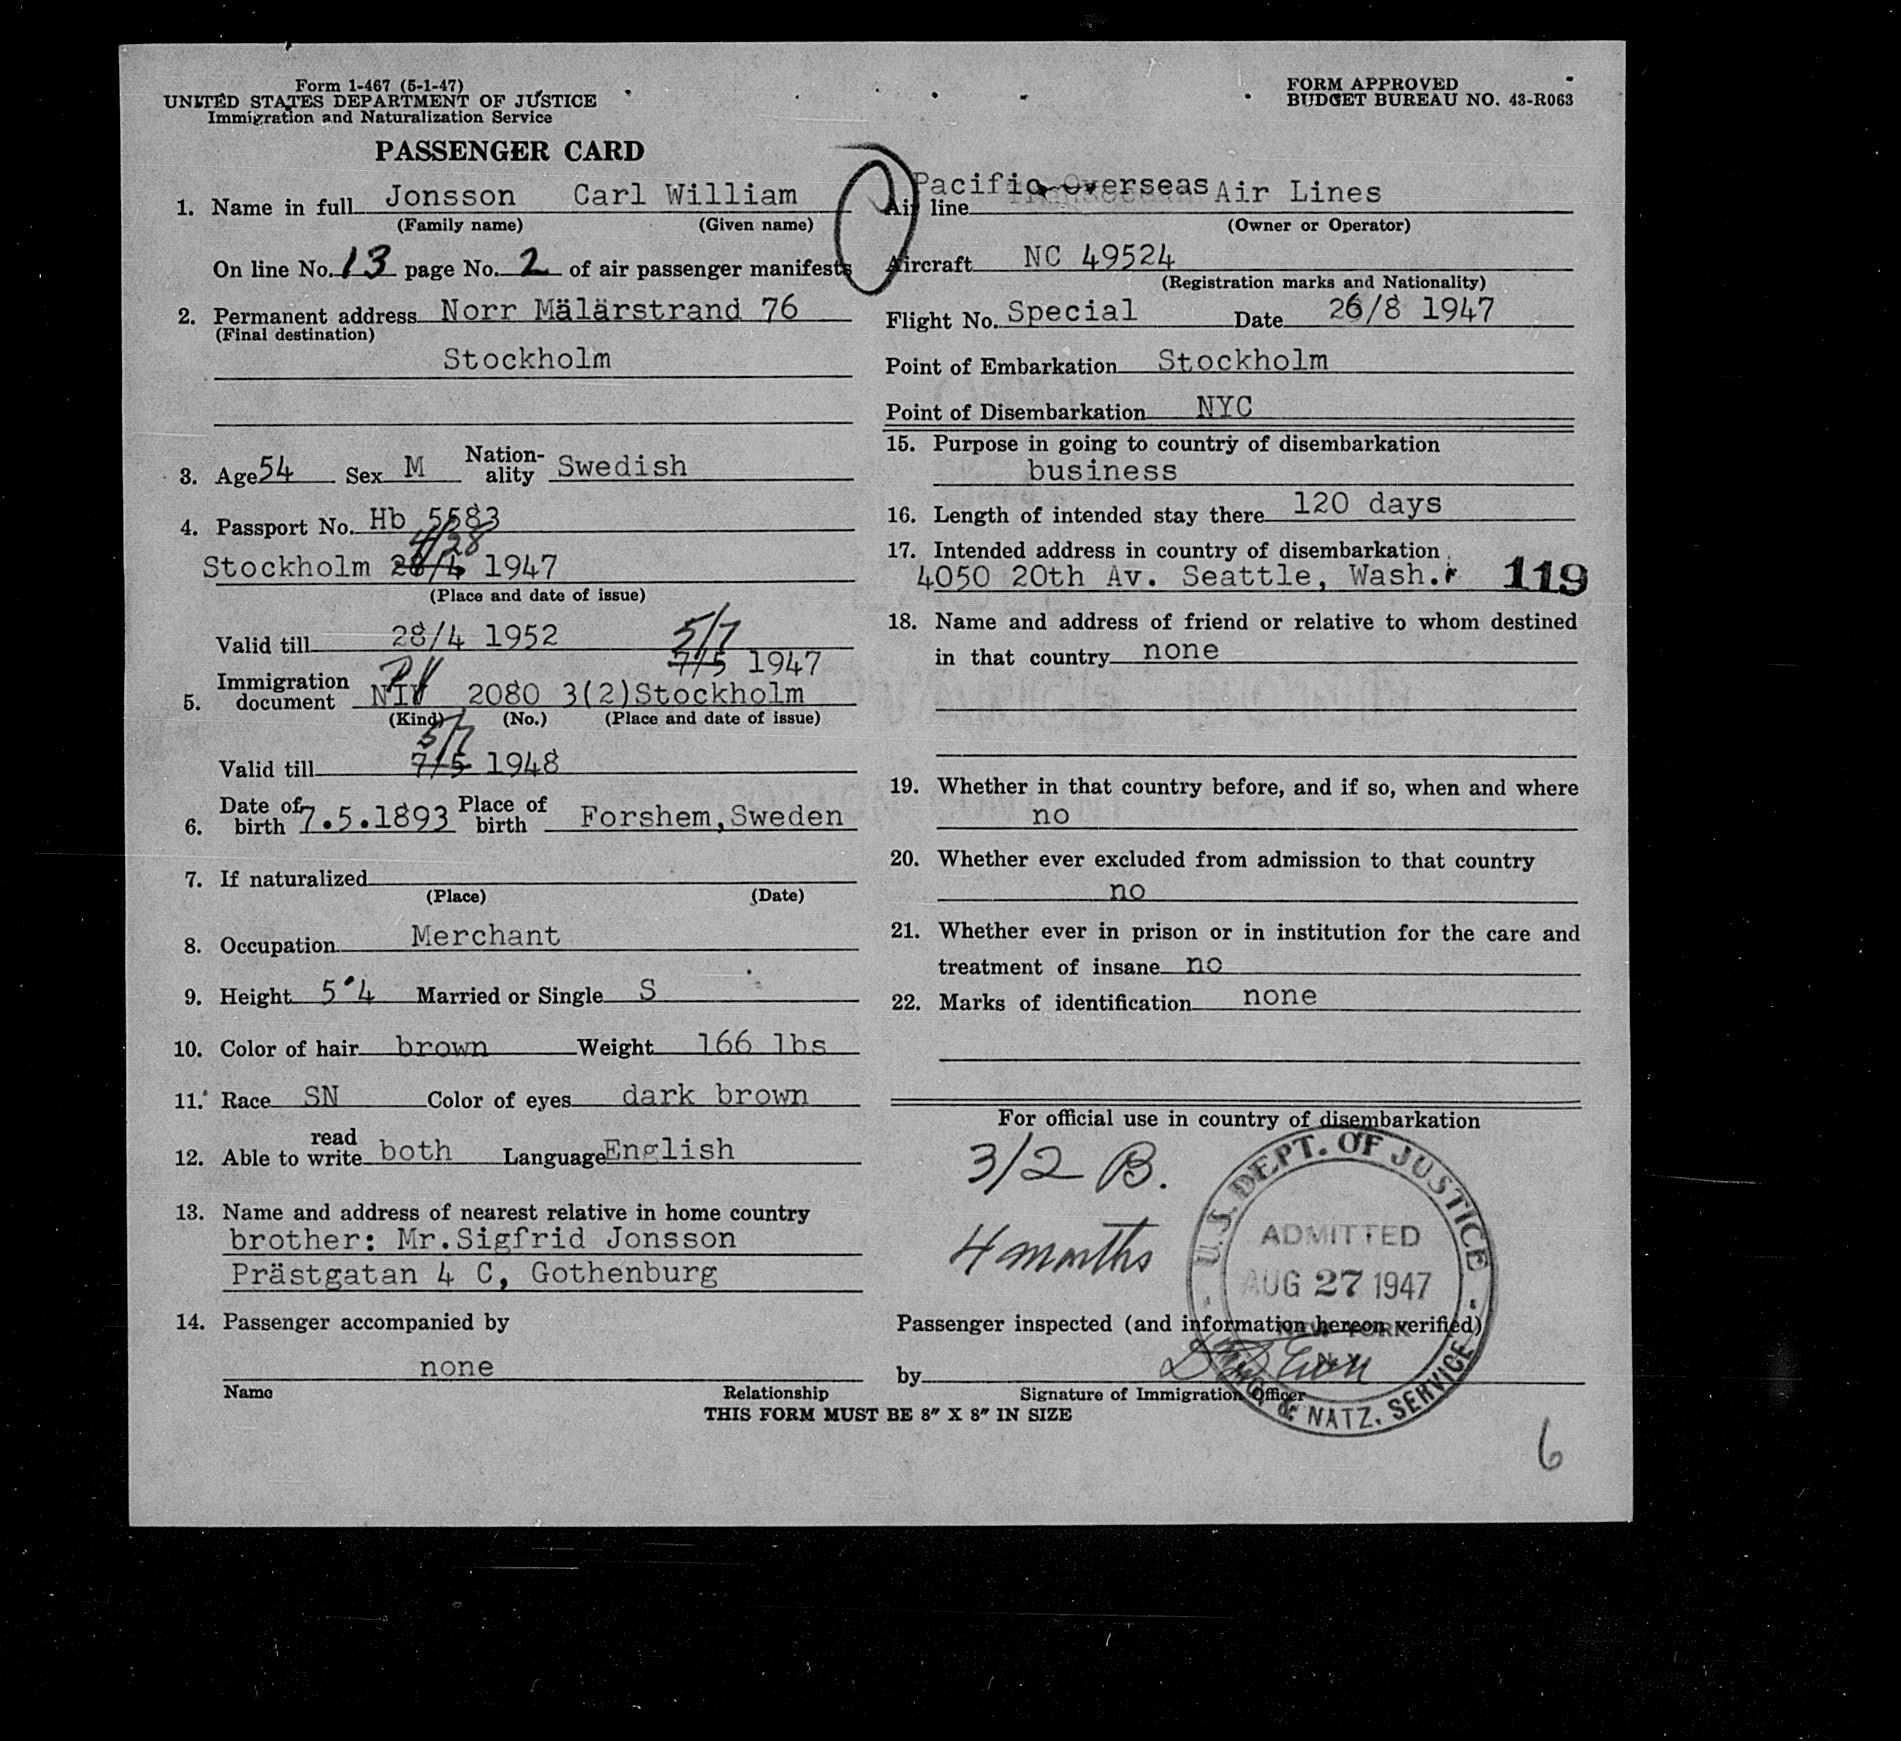 Form 1-467 (5-1-47)
UNITED STATES DEPARTMENT OF JUSTICE
Immigration and Naturalization Service
PASSENGER CARD
FORM APPROVED
BUDGET BUREAU NO. 43-R063
1. Name in full Jonsson Carl William
(Family name) (Given name)
On line No. 13 page No. 2 of air passenger manifests
2. Permanent address Norr Mälärstrand 76
(Final destination)
Stockholm
3. Age 54 Sex M Nation-ality Swedish
4. Passport No. Hb 5583
4/28
Stockholm 28/4 1947
(Place and date of issue)
Valid till 28/4 1952
5/7
7/5 1947
5. Immigration document NIV 2080 3(2) Stockholm
(Kind) (No.) (Place and date of issue)
5/7
Valid till 7/5 1948
6. Date of birth 7.5.1893 Place of birth Forshem, Sweden
7. If naturalized
(Place) (Date)
8. Occupation Merchant
9. Height 5'4 Married or Single S
10. Color of hair brown Weight 166 lbs
11. Race SN Color of eyes dark brown
12. Able to read write both Language English
13. Name and address of nearest relative in home country
brother: Mr. Sigfrid Jonsson
Prästgatan 4 C, Gothenburg
14. Passenger accompanied by
none
Name Relationship
Air line Pacific Overseas Air Lines
(Owner or Operator)
Aircraft NC 49524
(Registration marks and Nationality)
Flight No. Special Date 26/8 1947
Point of Embarkation Stockholm
Point of Disembarkation NYC
15. Purpose in going to country of disembarkation
business
16. Length of intended stay there 120 days
17. Intended address in country of disembarkation
4050 20th Av. Seattle, Wash. 119
18. Name and address of friend or relative to whom destined
in that country none
19. Whether in that country before, and if so, when and where
no
20. Whether ever excluded from admission to that country
no
21. Whether ever in prison or in institution for the care and
treatment of insane no
22. Marks of identification none
For official use in country of disembarkation
3/2 B.
4 months
U.S. DEPT. OF JUSTICE
ADMITTED
AUG 27 1947
NEW YORK
N.Y.
IMMIG. & NATZ. SERVICE
Passenger inspected (and information hereon verified)
by
Signature of Immigration Officer
THIS FORM MUST BE 8" X 8" IN SIZE
6